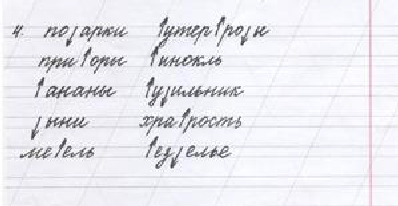 4 подарки бутерброды
приборы бинокль
бананы будильник
дыни храбрость
мебель безделье